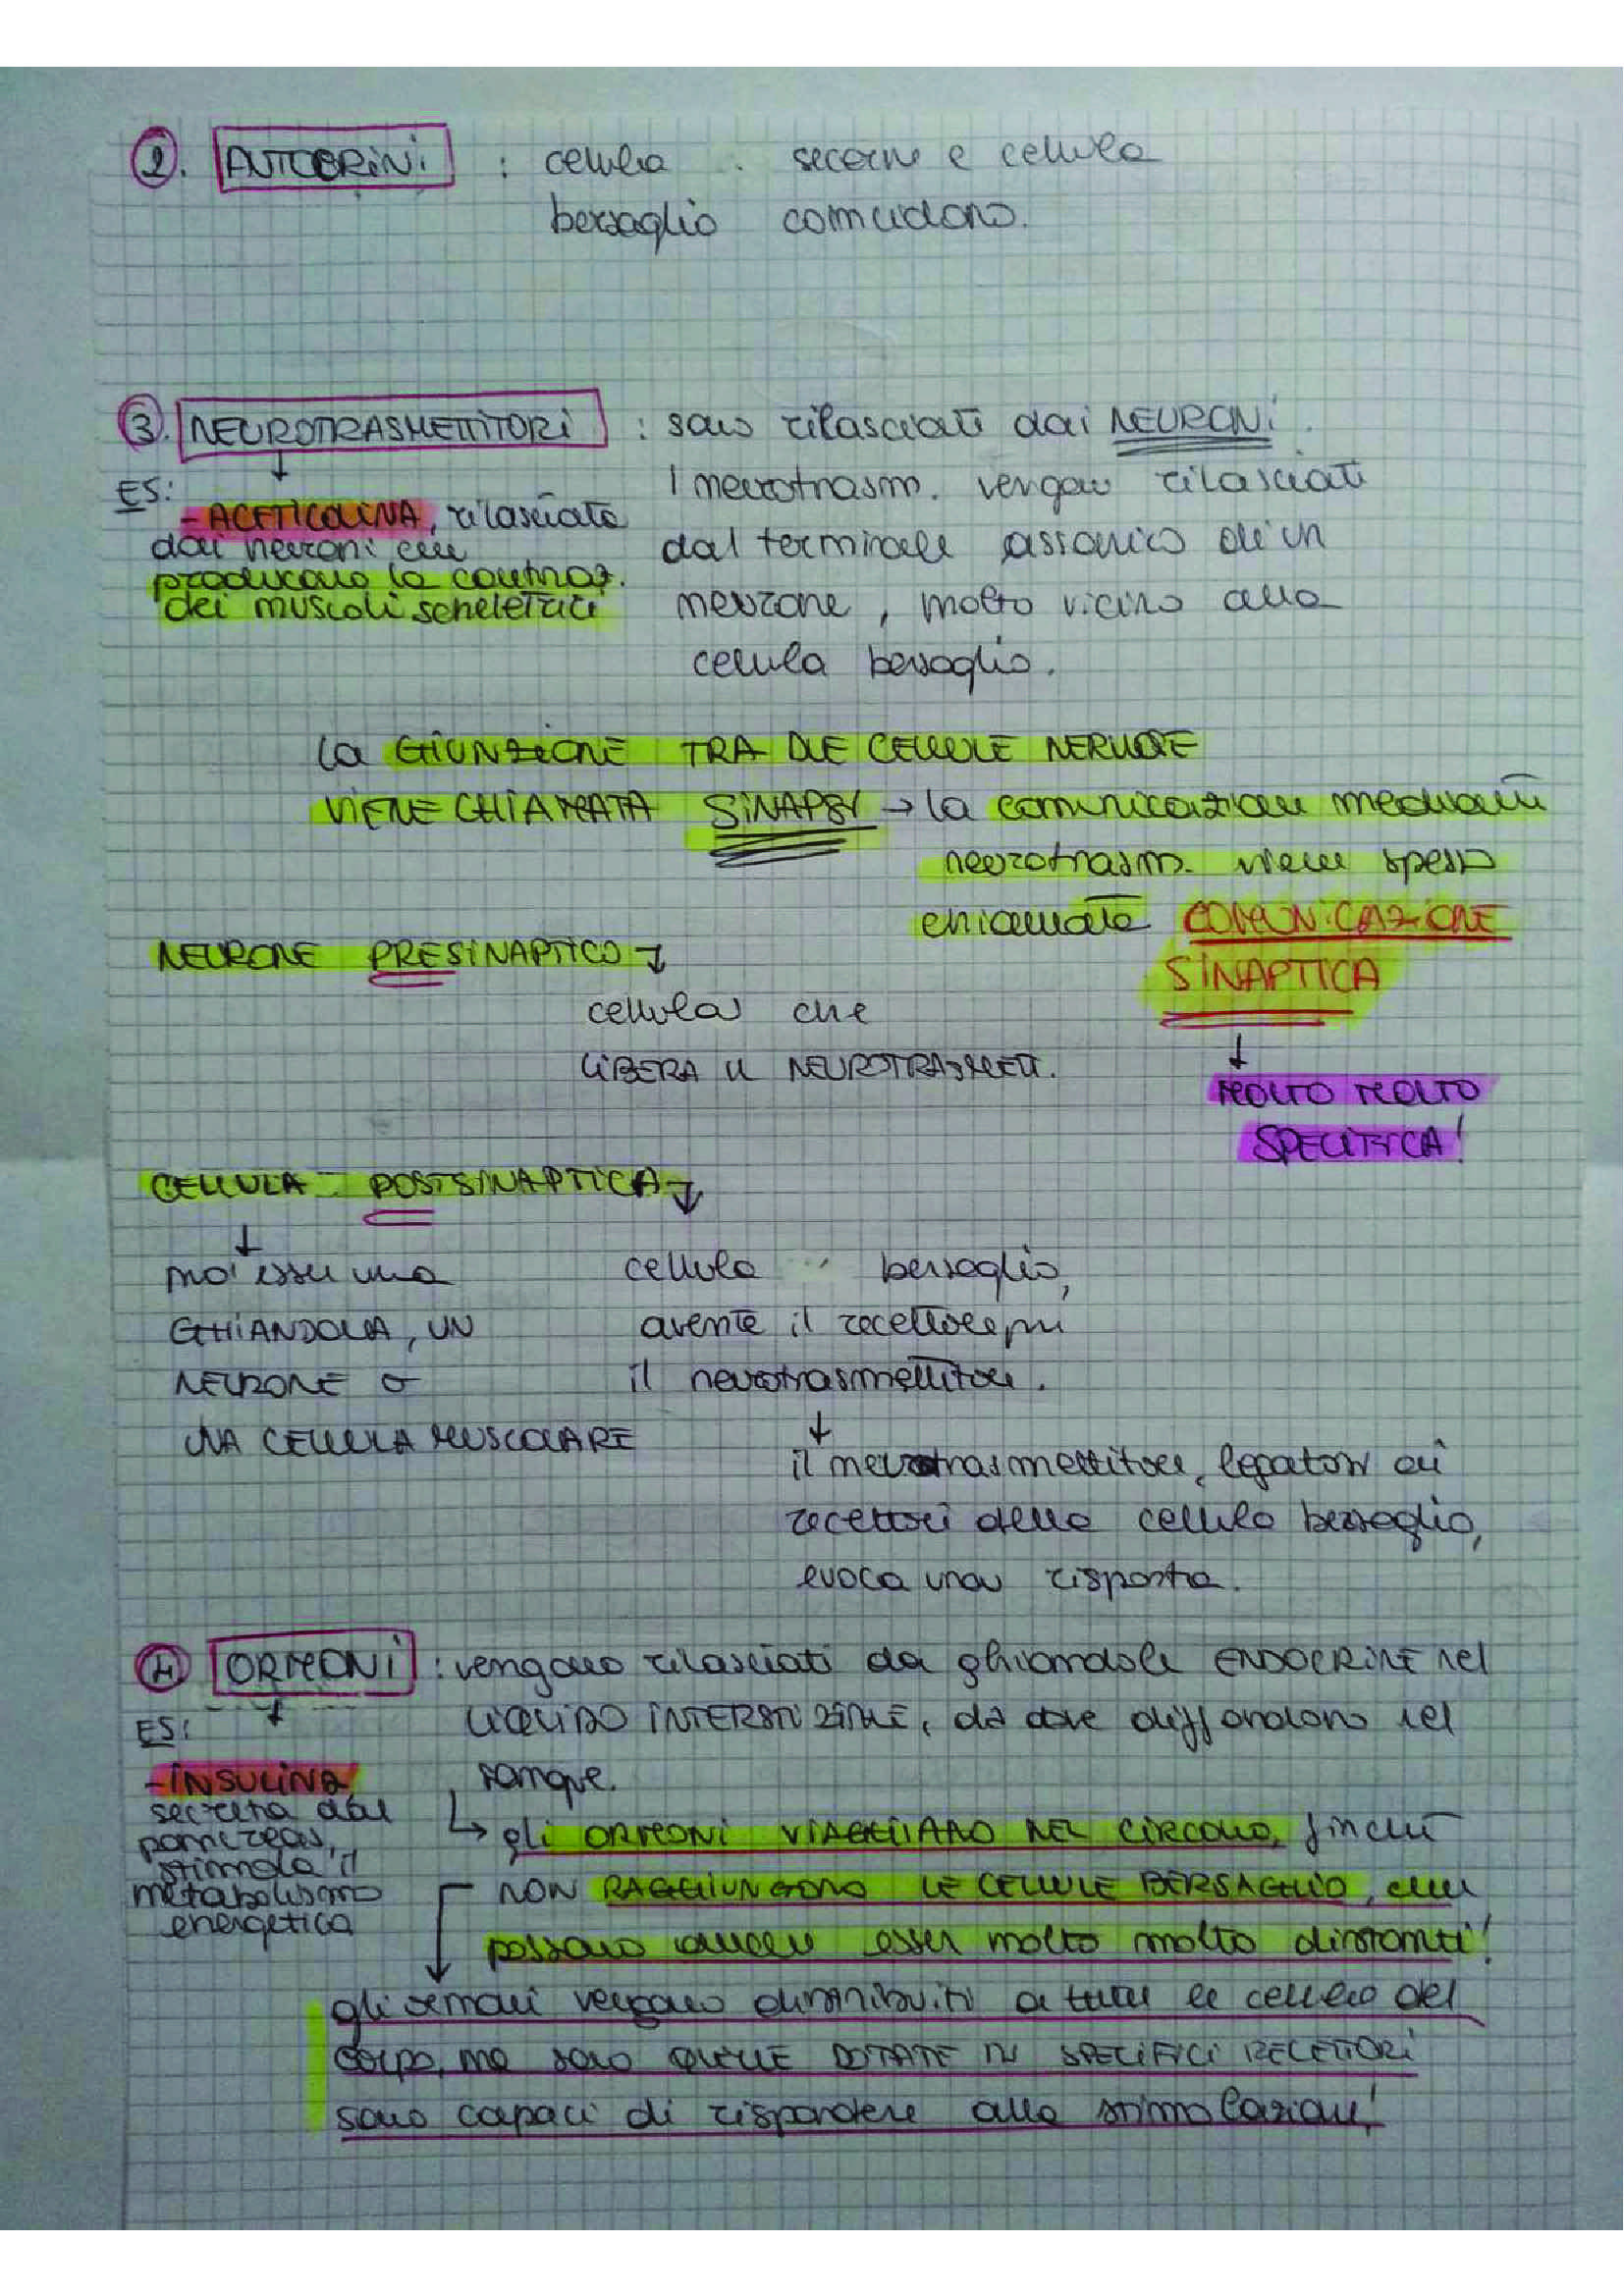 2. AUTOCRINI : cellula secerne e cellula
bersaglio coincidono.
3. NEUROTRASMETTITORI : sono rilasciati dai NEURONI.
I neurotrasm. vengono rilasciati
dal terminale assonico di un
neurone, molto vicino alla
cellula bersaglio.
ES:
- ACETICOLINA, rilasciata
dai neuroni che
producono la contraz.
dei muscoli scheletrici
la GIUNZIONE TRA DUE CELLULE NERVOSE
VIENE CHIAMATA SINAPSI → la comunicazione mediante
neurotrasm. viene spesso
chiamata COMUNICAZIONE
SINAPTICA
↓
MOLTO MOLTO
SPECIFICA!
NEURONE PRESINAPTICO ↓
cellula che
LIBERA IL NEUROTRASMETT.
CELLULA POSTSINAPTICA ↓
↓
può esser una
GHIANDOLA, UN
NEURONE o
UNA CELLULA MUSCOLARE
cellula bersaglio,
avente il recettore per
il neurotrasmettitore.
↓
il neurotrasmettitore, legatosi ai
recettori della cellula bersaglio,
evoca una risposta.
4. ORMONI : vengono rilasciati da ghiandole ENDOCRINE nel
LIQUIDO INTERSTIZIALE, da dove diffondono nel
sangue.
ES:
- INSULINA
secreta dal
pancreas,
stimola il
metabolismo
energetica
↳ gli ORMONI VIAGGIANO NEL CIRCOLO, finché
NON RAGGIUNGONO LE CELLULE BERSAGLIO, che
possono anche esser molto molto distanti!
gli ormoni vengono distribuiti a tutte le cellule del
corpo, ma solo QUELLE DOTATE DI SPECIFICI RECETTORI
sono capaci di rispondere alla stimolazione!